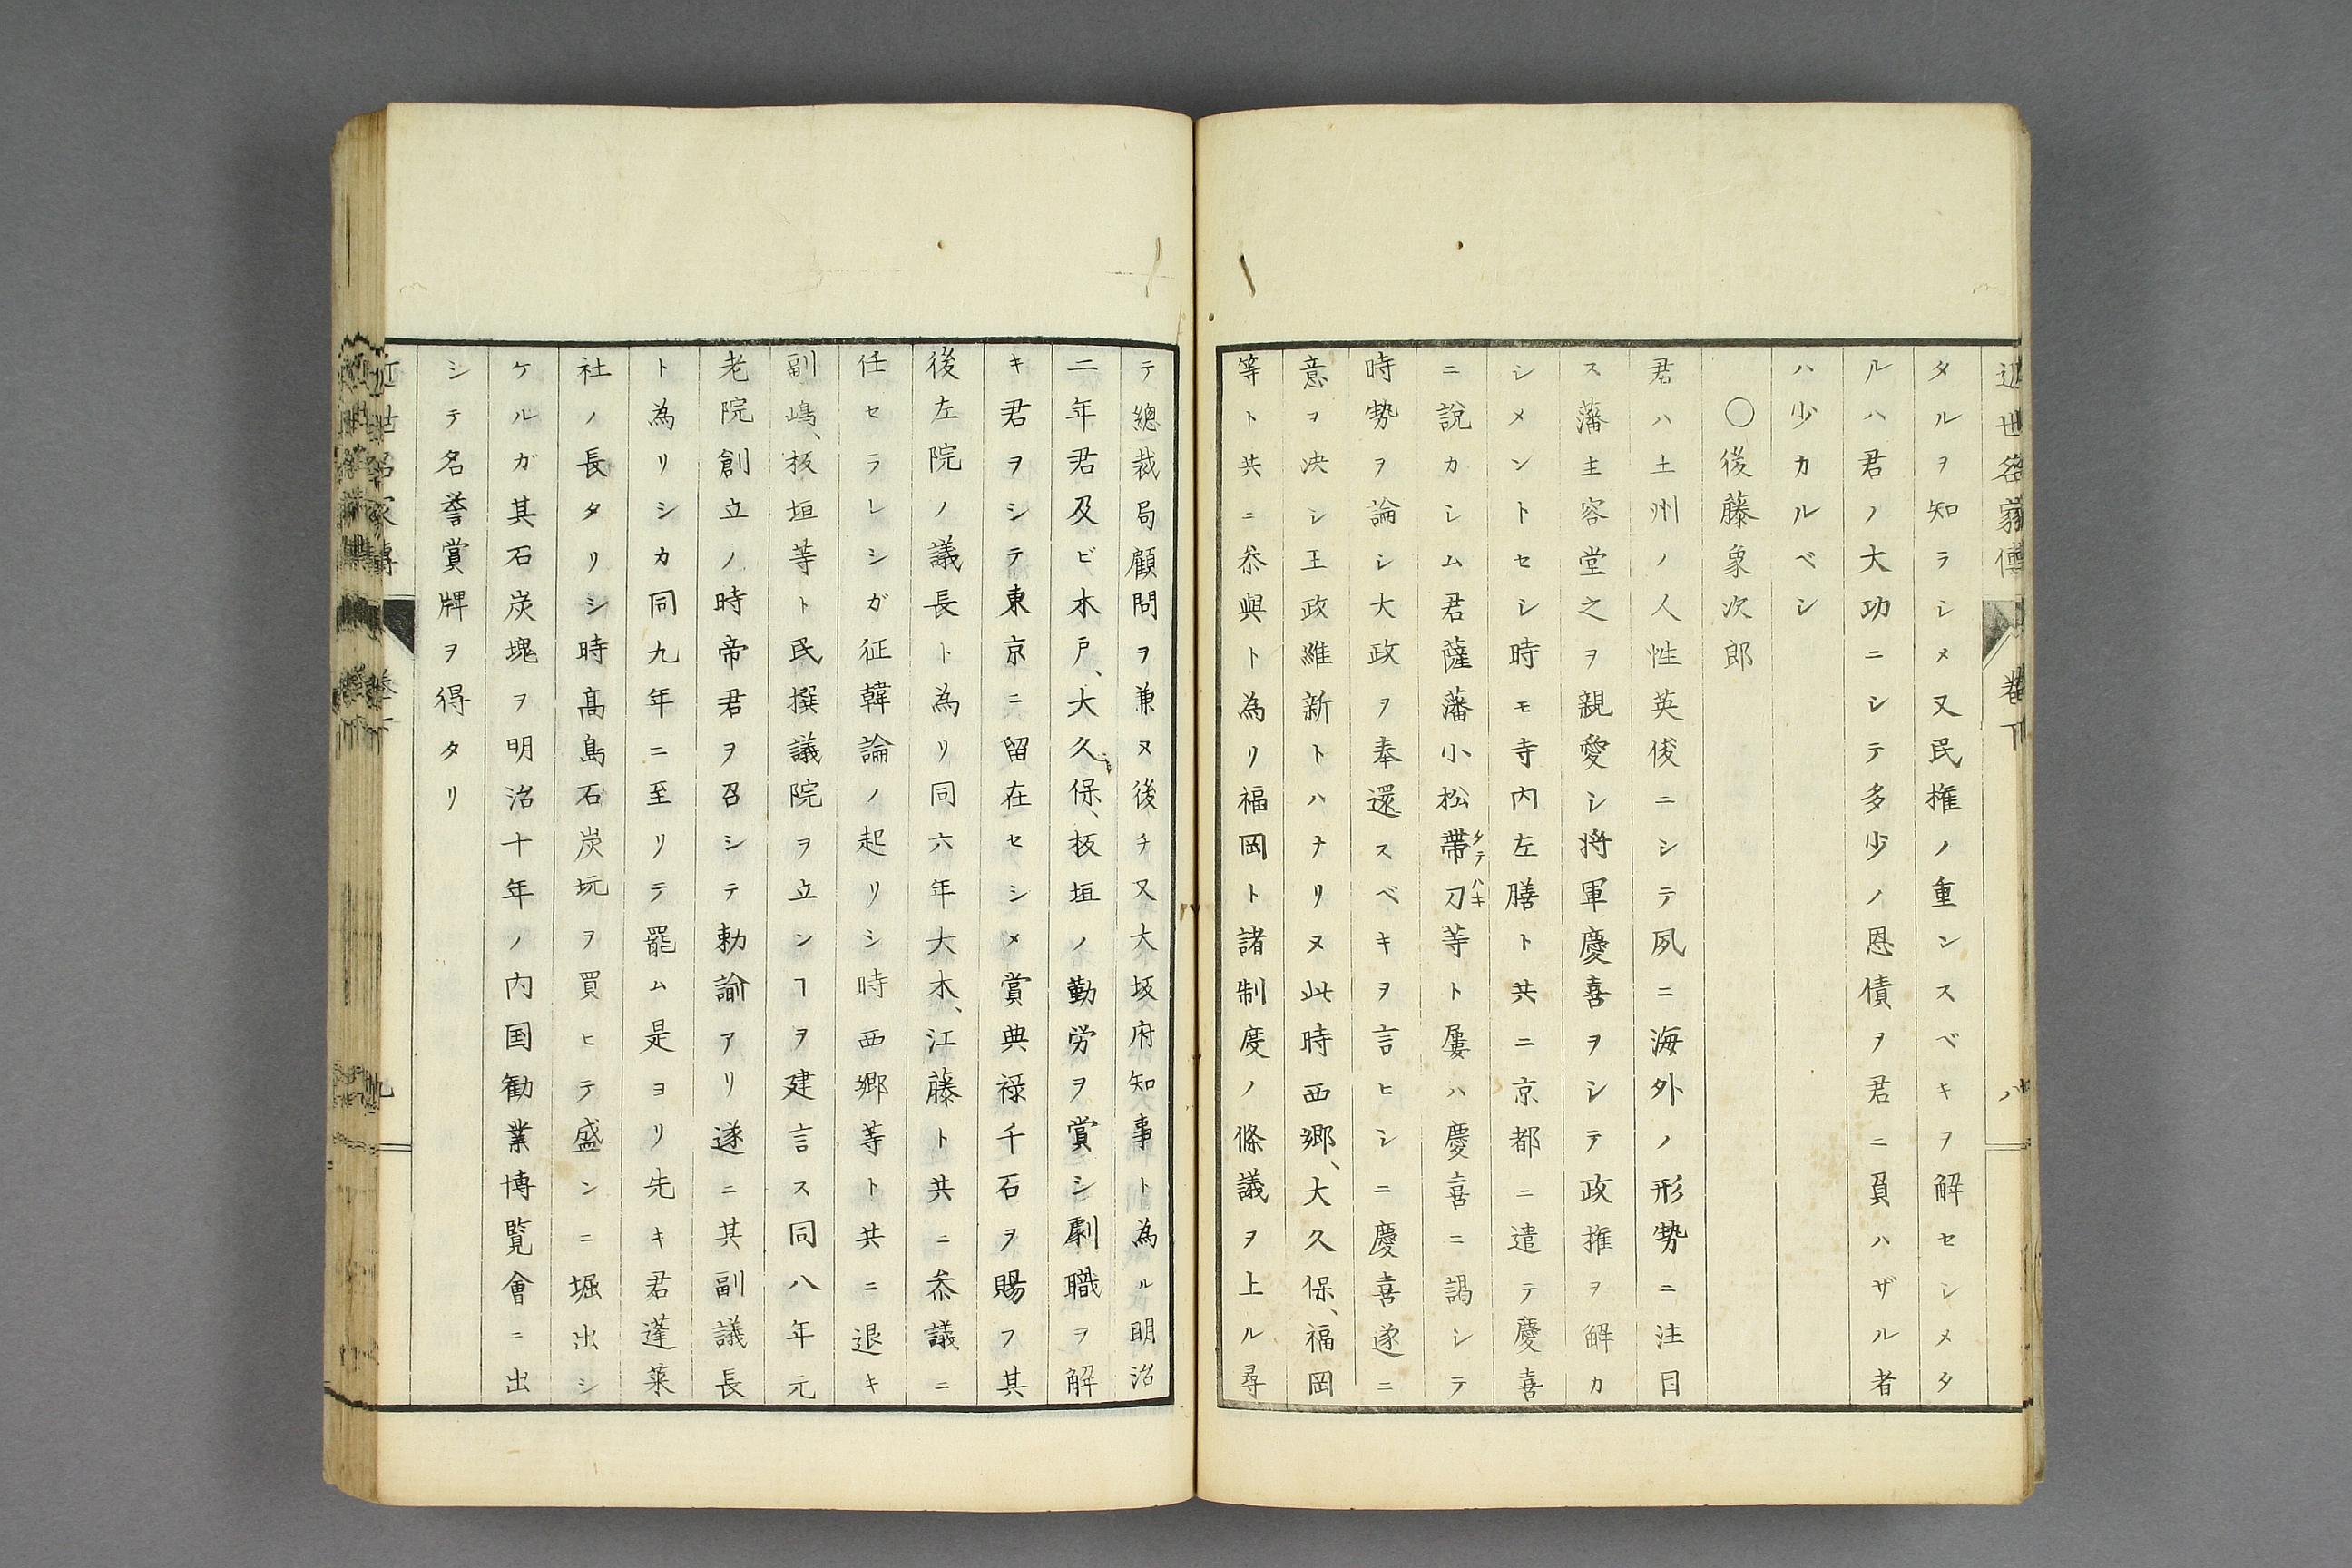 近世名家傳 卷下 八
タルヲ知ラシメ又民権ノ重ンスベキヲ解セシメタ
ルハ君ノ大功ニシテ多少ノ恩債ヲ君ニ負ハザル者
ハ少カルベシ
〇後藤象次郎
君ハ土州ノ人性英俊ニシテ夙ニ海外ノ形勢ニ注目
ス藩主容堂之ヲ親愛シ将軍慶喜ヲシテ政権ヲ解カ
シメントセシ時モ寺内左膳ト共ニ京都ニ遣テ慶喜
ニ說カシム君薩藩小松帶刀等ト屢ハ慶喜ニ謁シテ
タテハキ
時勢ヲ論シ大政ヲ奉還スベキヲ言ヒシニ慶喜遂ニ
意ヲ决シ王政維新トハナリヌ此時西郷、大久保、福岡
等ト共ニ叅與ト為リ福岡ト諸制度ノ條議ヲ上ル尋
テ總裁局顧問ヲ兼ヌ後チ又大坂府知事ト為ル明治
二年君及ビ木戸、大久保、板垣ノ勤労ヲ賞シ劇職ヲ解
キ君ヲシテ東京ニ留在セシメ賞典禄千石ヲ賜フ其
後左院ノ議長ト為リ同六年大木、江藤ト共ニ叅議ニ
任セラレシガ征韓論ノ起リシ時西郷等ト共ニ退キ
副嶋、板垣等ト民撰議院ヲ立ンヿヲ建言ス同八年元
老院創立ノ時帝君ヲ召シテ勅諭アリ遂ニ其副議長
ト為リシカ同九年ニ至リテ罷ム是ヨリ先キ君蓬萊
社ノ長タリシ時髙島石炭坑ヲ買ヒテ盛ンニ堀出シ
ケルガ其石炭塊ヲ明治十年ノ内国勧業博覧會ニ出
シテ名誉賞牌ヲ得タリ